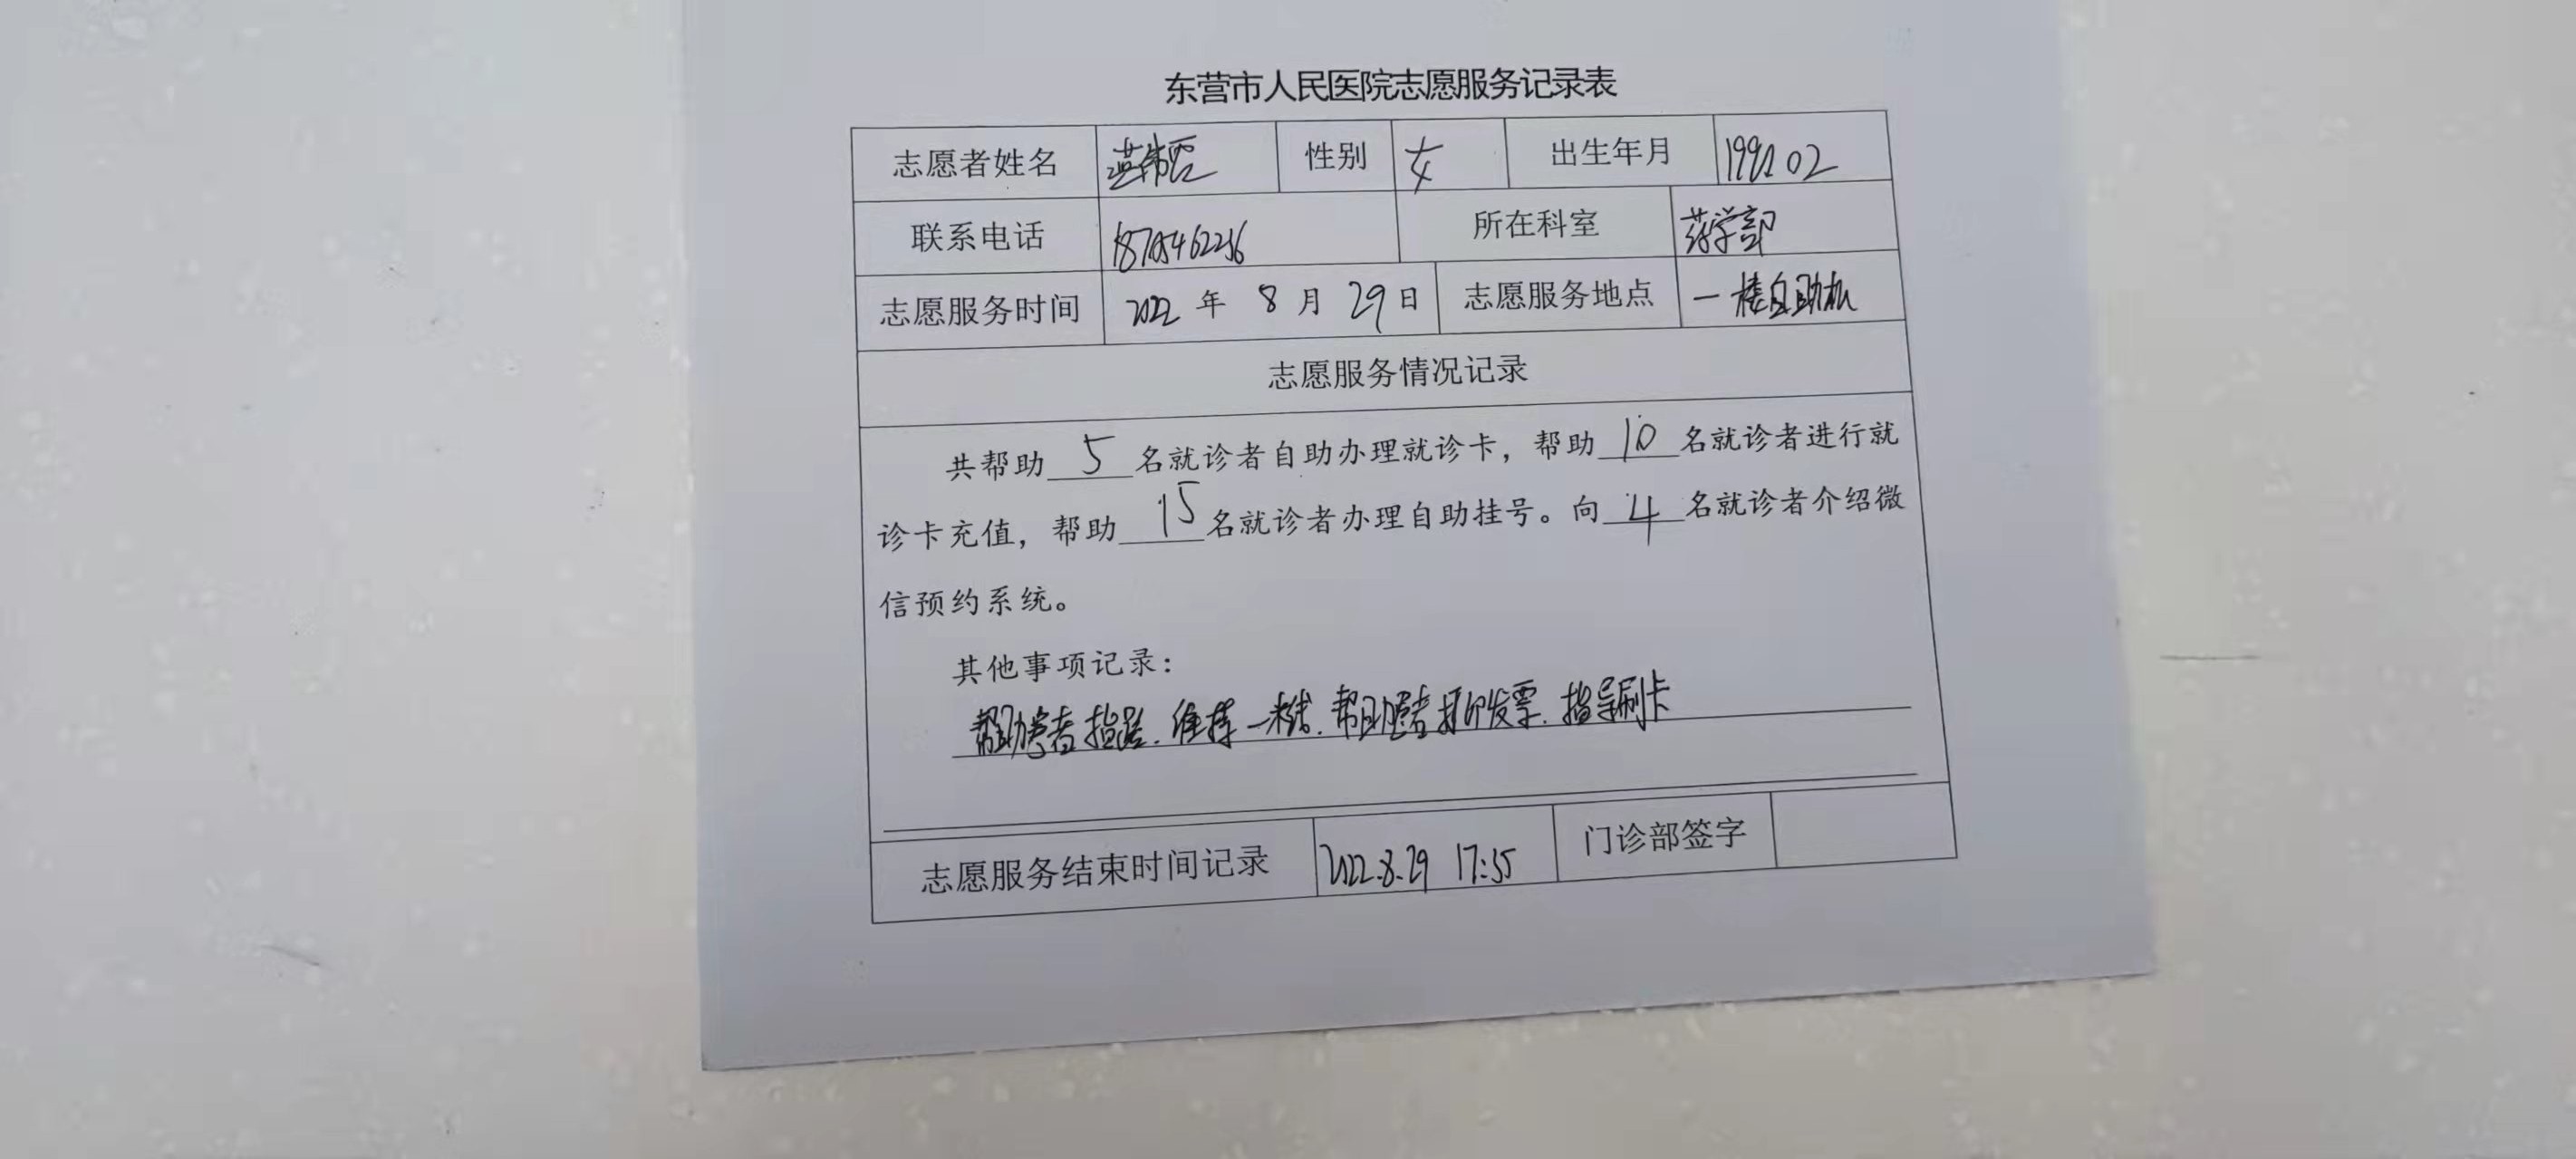 东营市人民医院志愿服务记录表
志愿者姓名 性别 女 出生年月
联系电话 所在科室 药学部
志愿服务时间 2022 年 8 月 29 日 志愿服务地点 一楼自助机
志愿服务情况记录
共帮助 5 名就诊者自助办理就诊卡，帮助 10 名就诊者进行就
诊卡充值，帮助 15 名就诊者办理自助挂号。向 4 名就诊者介绍微
信预约系统。
其他事项记录：
帮助患者指路.维持一米线.帮助患者打印发票.指导刷卡
志愿服务结束时间记录 2022.8.29 17:35 门诊部签字